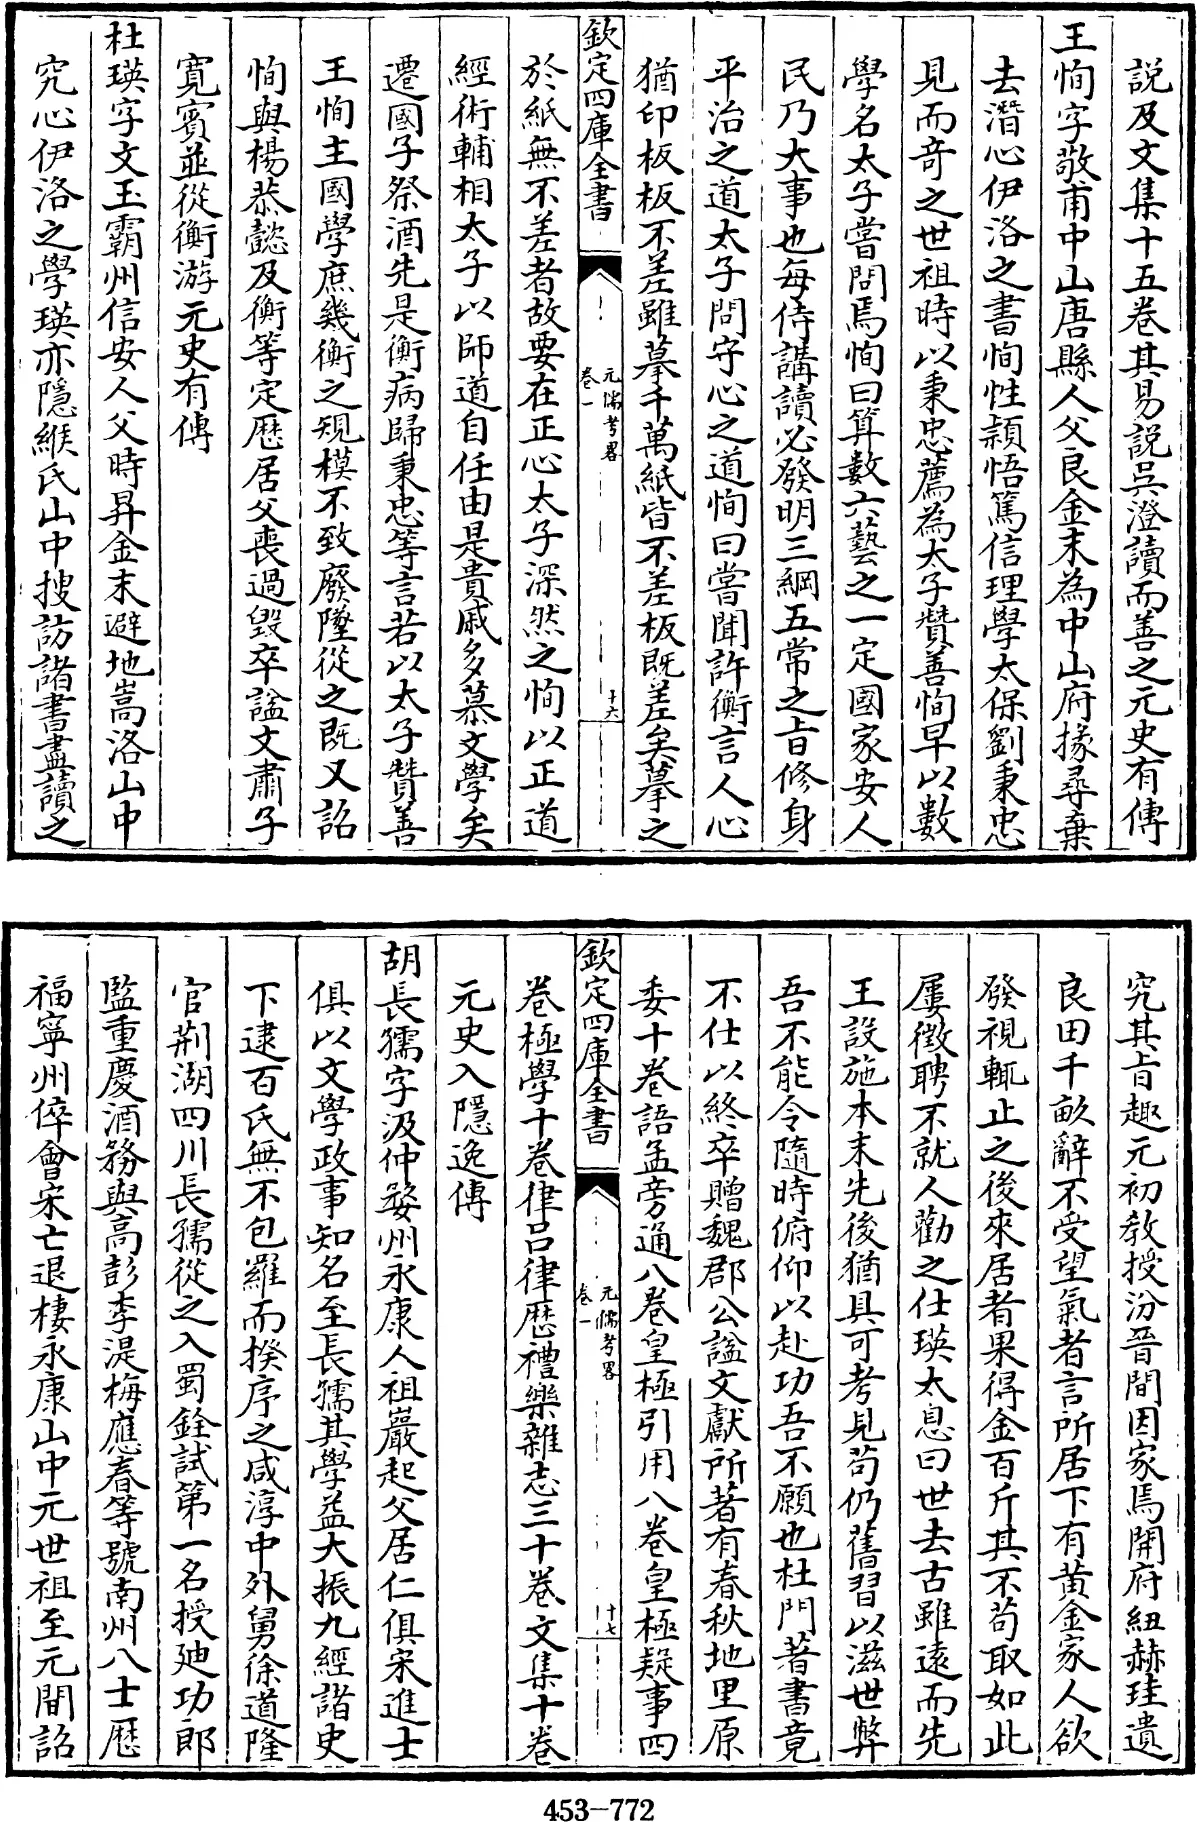 說及文集十五卷其易說吳澄讀而善之元史有傳
王恂字敬甫中山唐縣人父良金末為中山府掾尋棄
去潛心伊洛之書恂性穎悟篤信理學太保劉秉忠
見而奇之世祖時以秉忠薦為太子贊善恂早以數
學名太子嘗問焉恂曰算數六藝之一定國家安人
民乃大事也每侍講讀必發明三綱五常之旨修身
平治之道太子問守心之道恂曰嘗聞許衡言人心
猶印板板不差雖摹千萬紙皆不差板既差矣摹之
欽定四庫全書
元儒考畧
卷一
十六
於紙無不差者故要在正心太子深然之恂以正道
經術輔相太子以師道自任由是貴戚多慕文學矣
遷國子祭酒先是衡病歸秉忠等言若以太子贊善
王恂主國學庶幾衡之規模不致廢墜從之既又詔
恂與楊恭懿及衡等定歷居父喪過毀卒諡文肅子
寛賓並從衡游元史有傳
杜瑛字文玉霸州信安人父時昇金末避地嵩洛山中
究心伊洛之學瑛亦隱緱氏山中搜訪諸書盡讀之
究其旨趣元初教授汾晉間因家焉開府紐赫珪遺
良田千畝辭不受望氣者言所居下有黃金家人欲
發視輒止之後來居者果得金百斤其不苟取如此
屢徵聘不就人勸之仕瑛太息曰世去古雖遠而先
王設施本末先後猶具可考見苟仍舊習以滋世弊
吾不能令隨時俯仰以赴功吾不願也杜門著書竟
不仕以終卒贈魏郡公諡文獻所著有春秋地里原
委十卷語孟旁通八卷皇極引用八卷皇極疑事四
欽定四庫全書
元儒考畧
卷一
十七
卷極學十卷律呂律歷禮樂雜志三十卷文集十卷
元史入隱逸傳
胡長孺字汲仲婺州永康人祖巖起父居仁俱宋進士
俱以文學政事知名至長孺其學益大振九經諸史
下逮百氏無不包羅而揆序之咸淳中外舅徐道隆
官荆湖四川長孺從之入蜀銓試第一名授迪功郎
監重慶酒務與高彭李湜梅應春等號南州八士歷
福寧州倅會宋亡退棲永康山中元世祖至元間詔
453-772